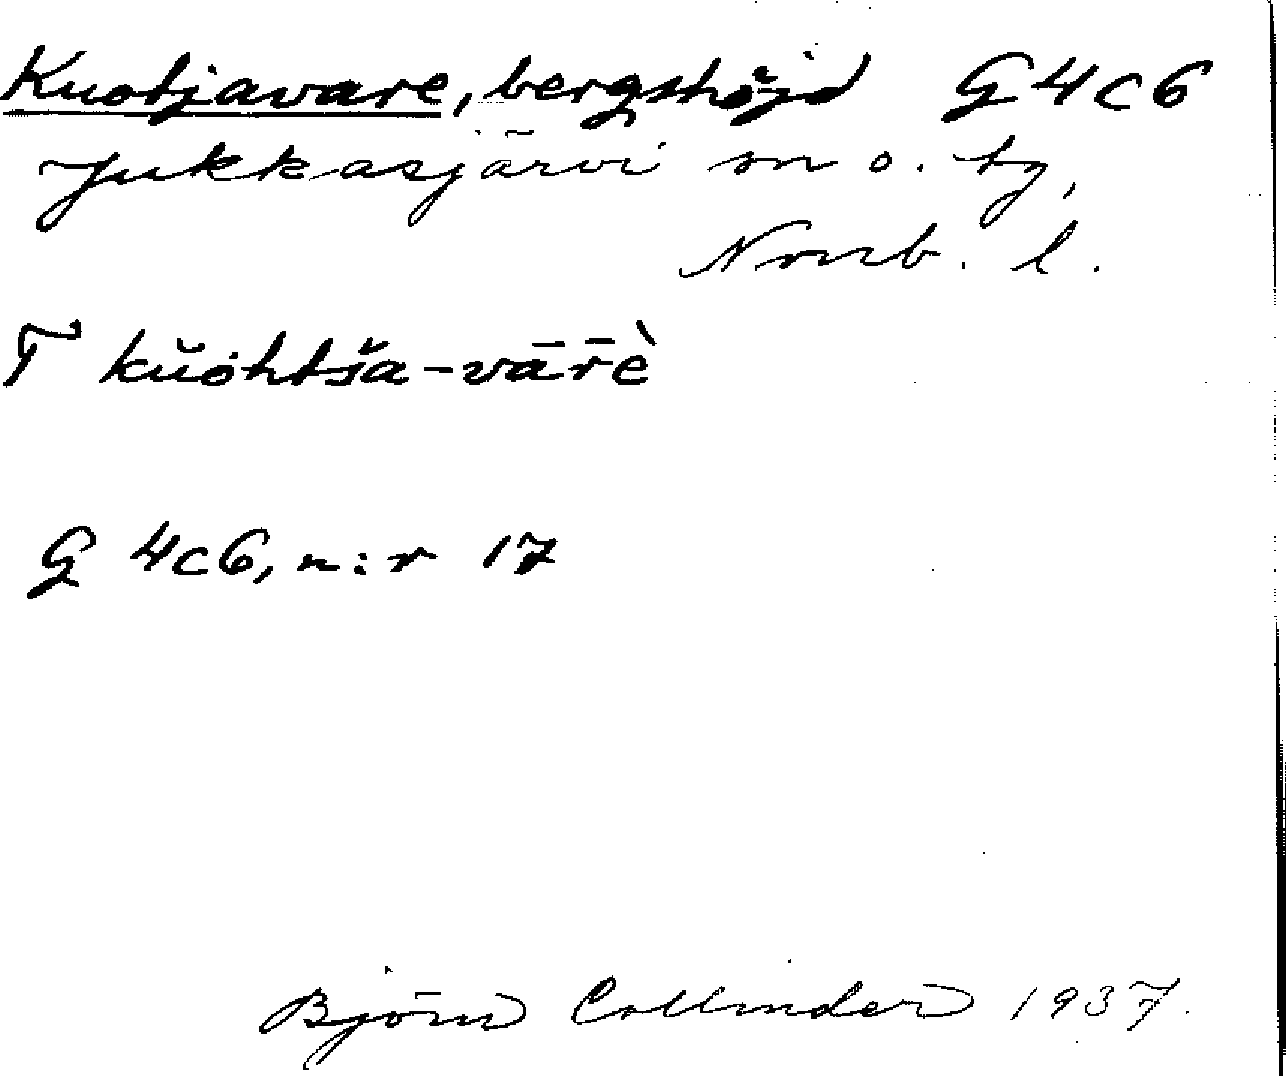 Kuotjavare, bergshöjd G4c6
Jukkasjärvi sn o. tg,
Nrrb. l.
T kŭȯhtša-vārḕ
G 4c6, n:r 17
Björn Collinder 1937.